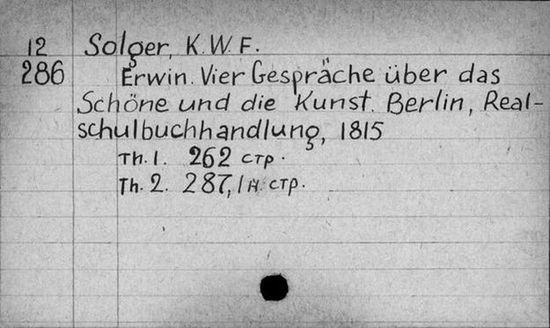 12 Solger, K. W. F.
286 Erwin. Vier Gespräche über das
Schöne und die Kunst. Berlin, Real-
schulbuchhandlung, 1815
Th. 1. 262 стр.
Th. 2. 287, 1 н. стр.